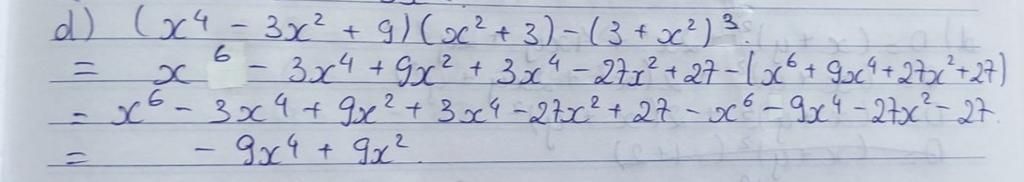 d) (x⁴ - 3x² + 9)(x² + 3) - (3 + x²)³.
= x⁶ - 3x⁴ + 9x² + 3x⁴ - 27x² + 27 - (x⁶ + 9x⁴ + 27x² + 27)
= x⁶ - 3x⁴ + 9x² + 3x⁴ - 27x² + 27 - x⁶ - 9x⁴ - 27x² - 27.
= - 9x⁴ + 9x².